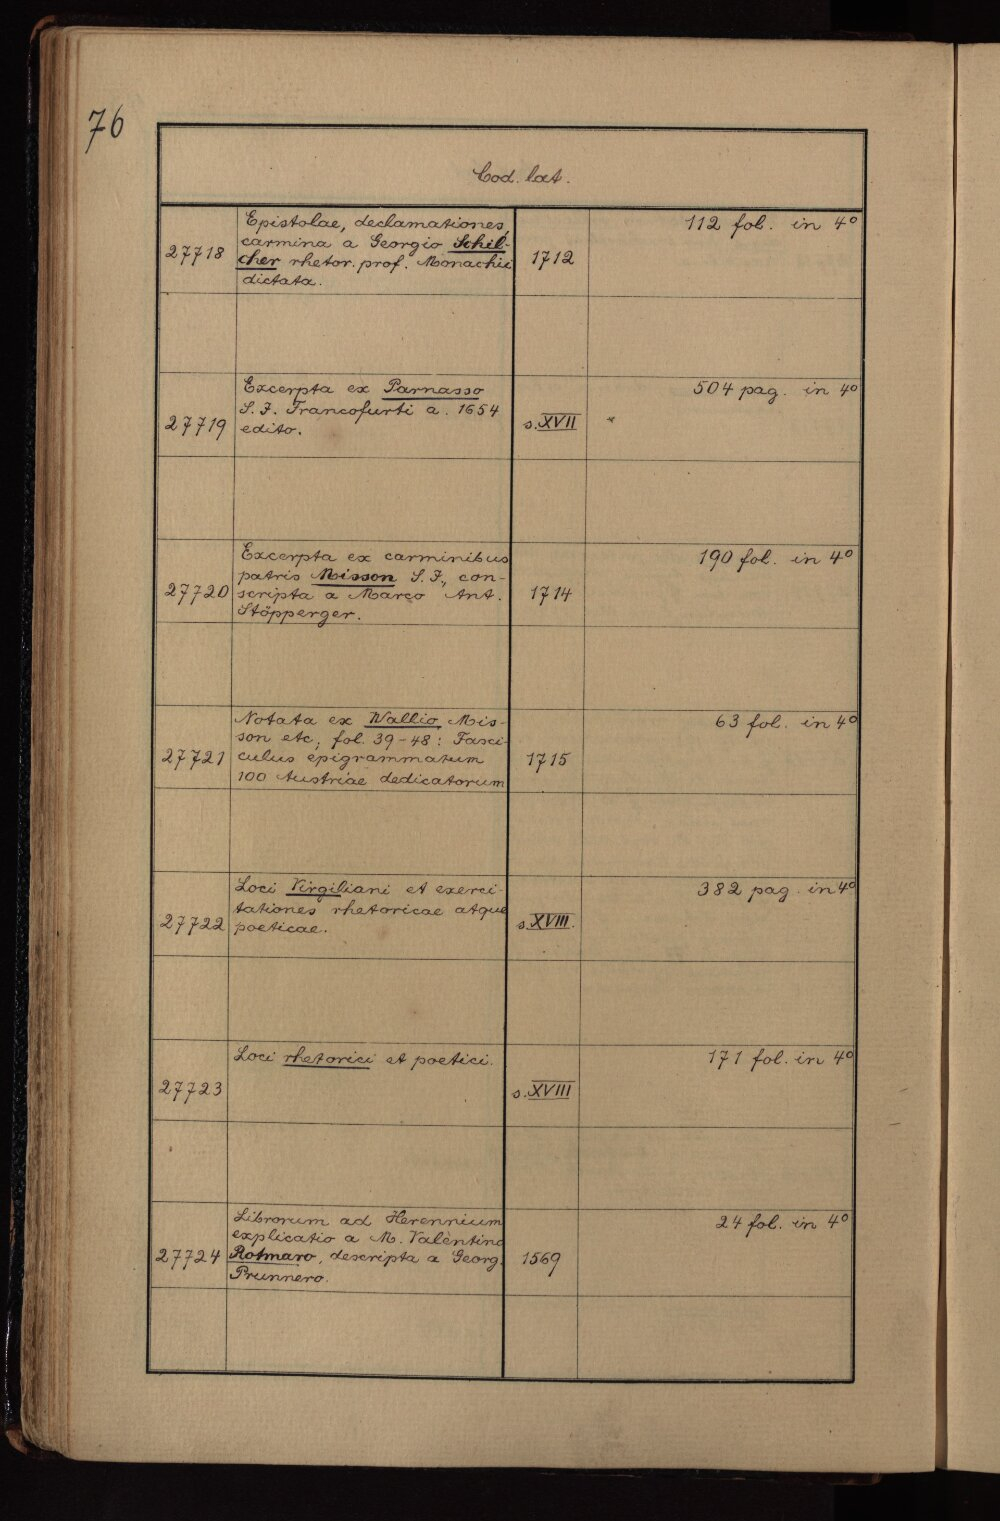 76
Cod. lat.
27718
Epistolae, declamationes,
carmina a Georgio Schil-
cher rhetor. prof. Monachii
dictata.
1712
112 fol. in 4°
27719
Excerpta ex Parnasso
S. J. Francofurti a. 1654
edito.
s. XVII
504 pag. in 4°
27720
Excerpta ex carminibus
patris Misson S. J., con-
scripta a Marco Ant.
Stöpperger.
1714
190 fol. in 4°
27721
Notata ex Wallio, Mis-
son etc; fol. 39-48: Fasci-
culus epigrammatum
100 Austriae dedicatorum
1715
63 fol. in 4°
27722
Loci Virgiliani et exerci-
tationes rhetoricae atque
poeticae.
s. XVIII.
382 pag. in 4°
27723
Loci rhetorici et poetici.
s. XVIII
171 fol. in 4°
27724
Librorum ad Herennium
explicatio a M. Valentino
Rotmaro, descripta a Georg.
Prunnero.
1569
24 fol. in 4°